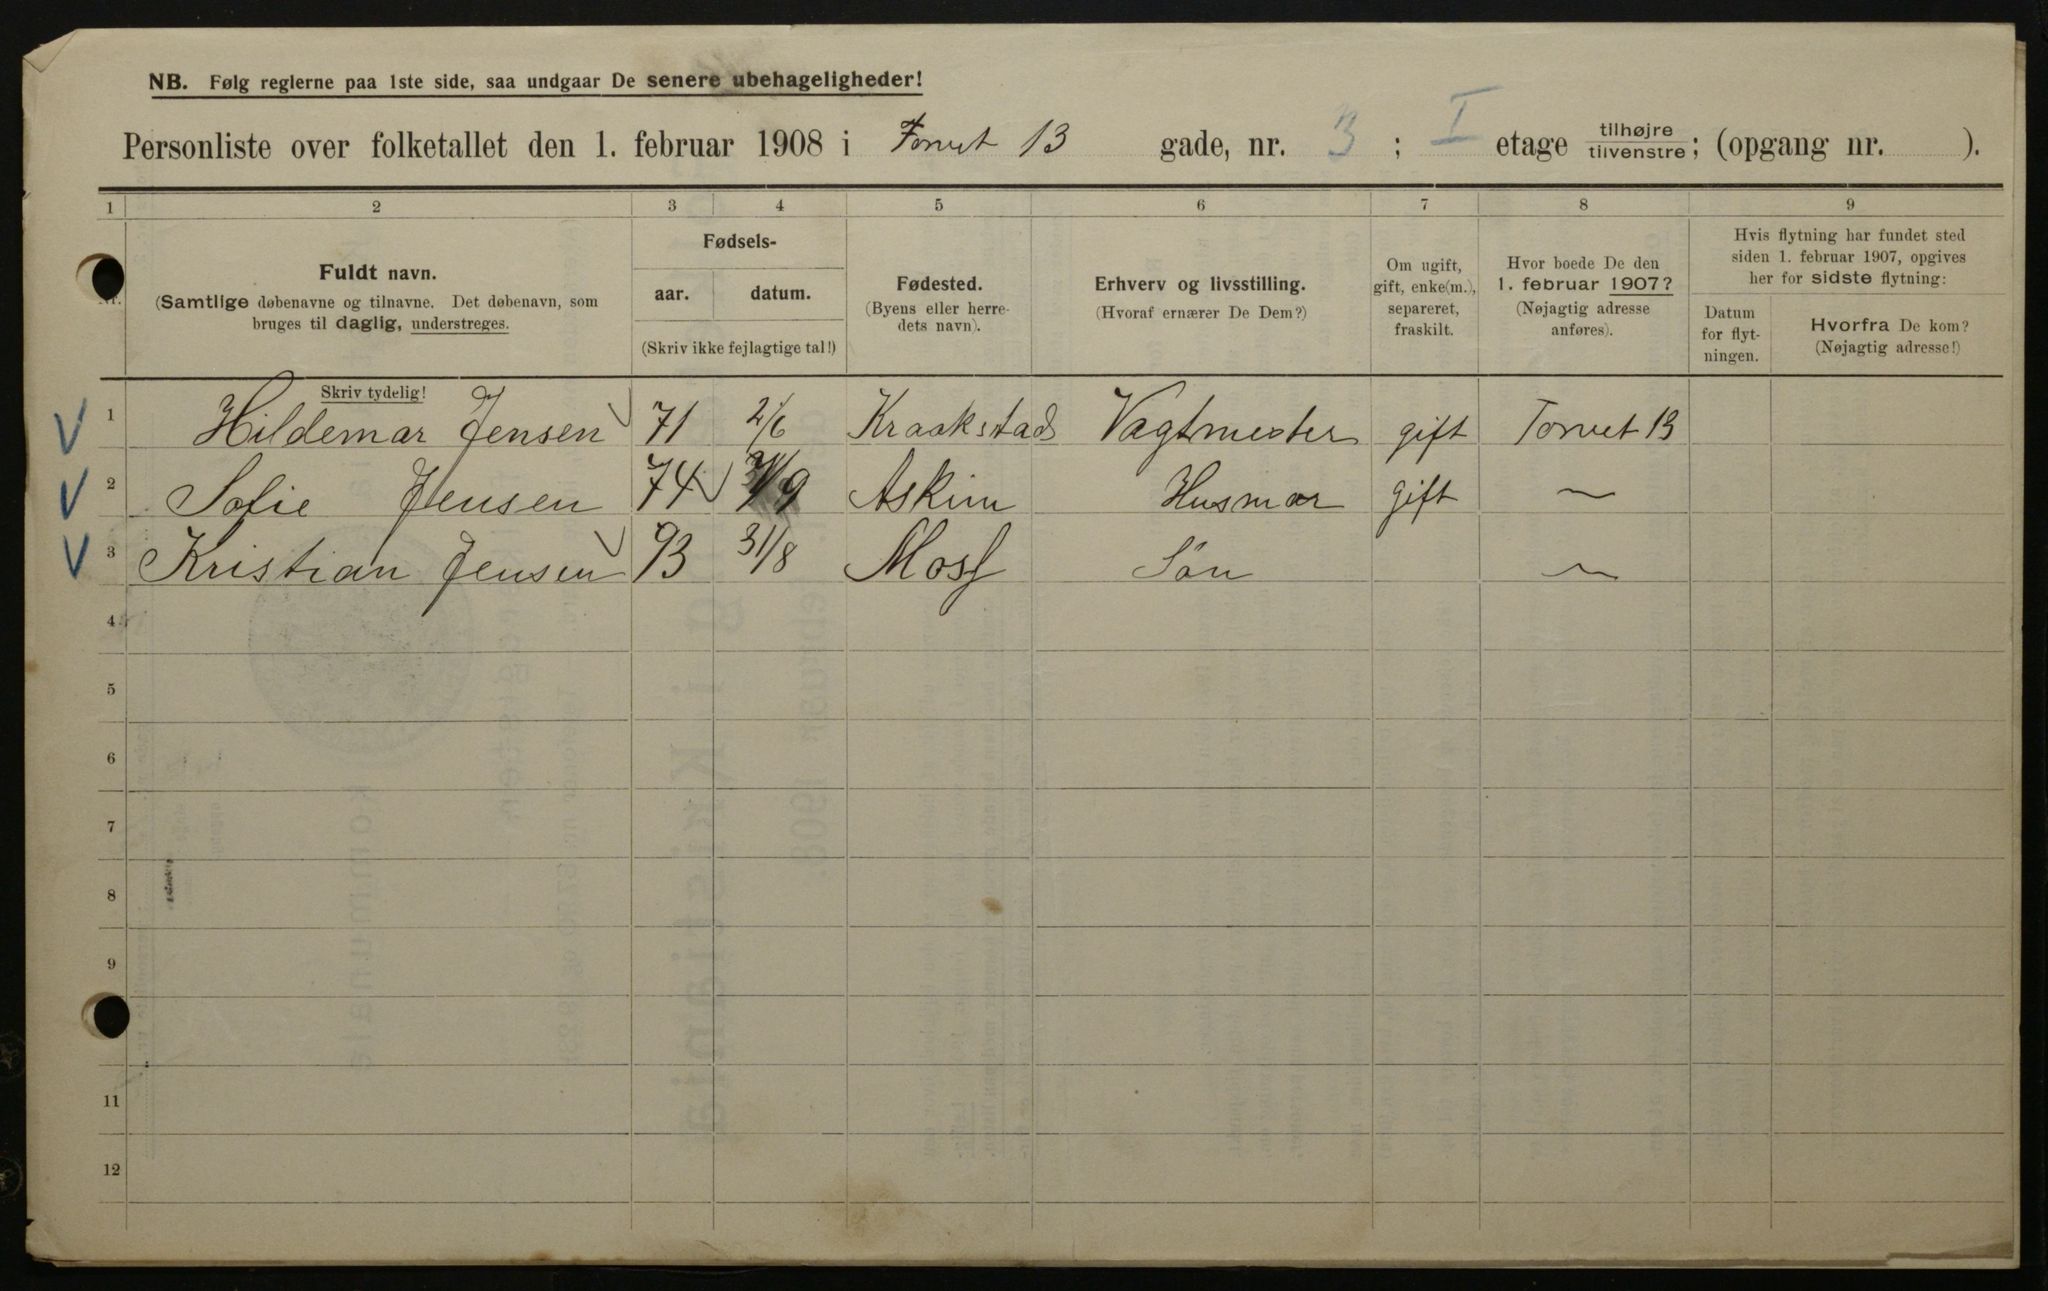 NB. Følg reglerne paa 1ste side, saa undgaar De senere ubehageligheder!
Personliste over folketallet den 1. februar 1908 i Torvet 13 gade, nr. 3; I etage tilhøjre tilvenstre; (opgang nr. ).
1 2 3 4 5 6 7 8 9
Nr.
Fuldt navn.
(Samtlige døbenavne og tilnavne. Det døbenavn, som
bruges til daglig, understreges.
Skriv tydelig!
Fødsels-
aar. datum.
(Skriv ikke fejlagtige tal!)
Fødested.
(Byens eller herre-
dets navn).
Erhverv og livsstilling.
(Hvoraf ernærer De Dem?)
Om ugift,
gift, enke(m.),
separeret,
fraskilt.
Hvor boede De den
1. februar 1907?
(Nøjagtig adresse
anføres).
Hvis flytning har fundet sted
siden 1. februar 1907, opgives
her for sidste flytning:
Datum
for flyt-
ningen.
Hvorfra De kom?
(Nøjagtig adresse!)
1 Hildemar Jensen 71 2/6 Kraakstad Vagtmester gift Torvet 13
2 Sofie Jensen 74 Askim Husmor gift ~
3 Kristian Jensen 93 31/8 Moss Sön ~
4
5
6
7
8
9
11
12